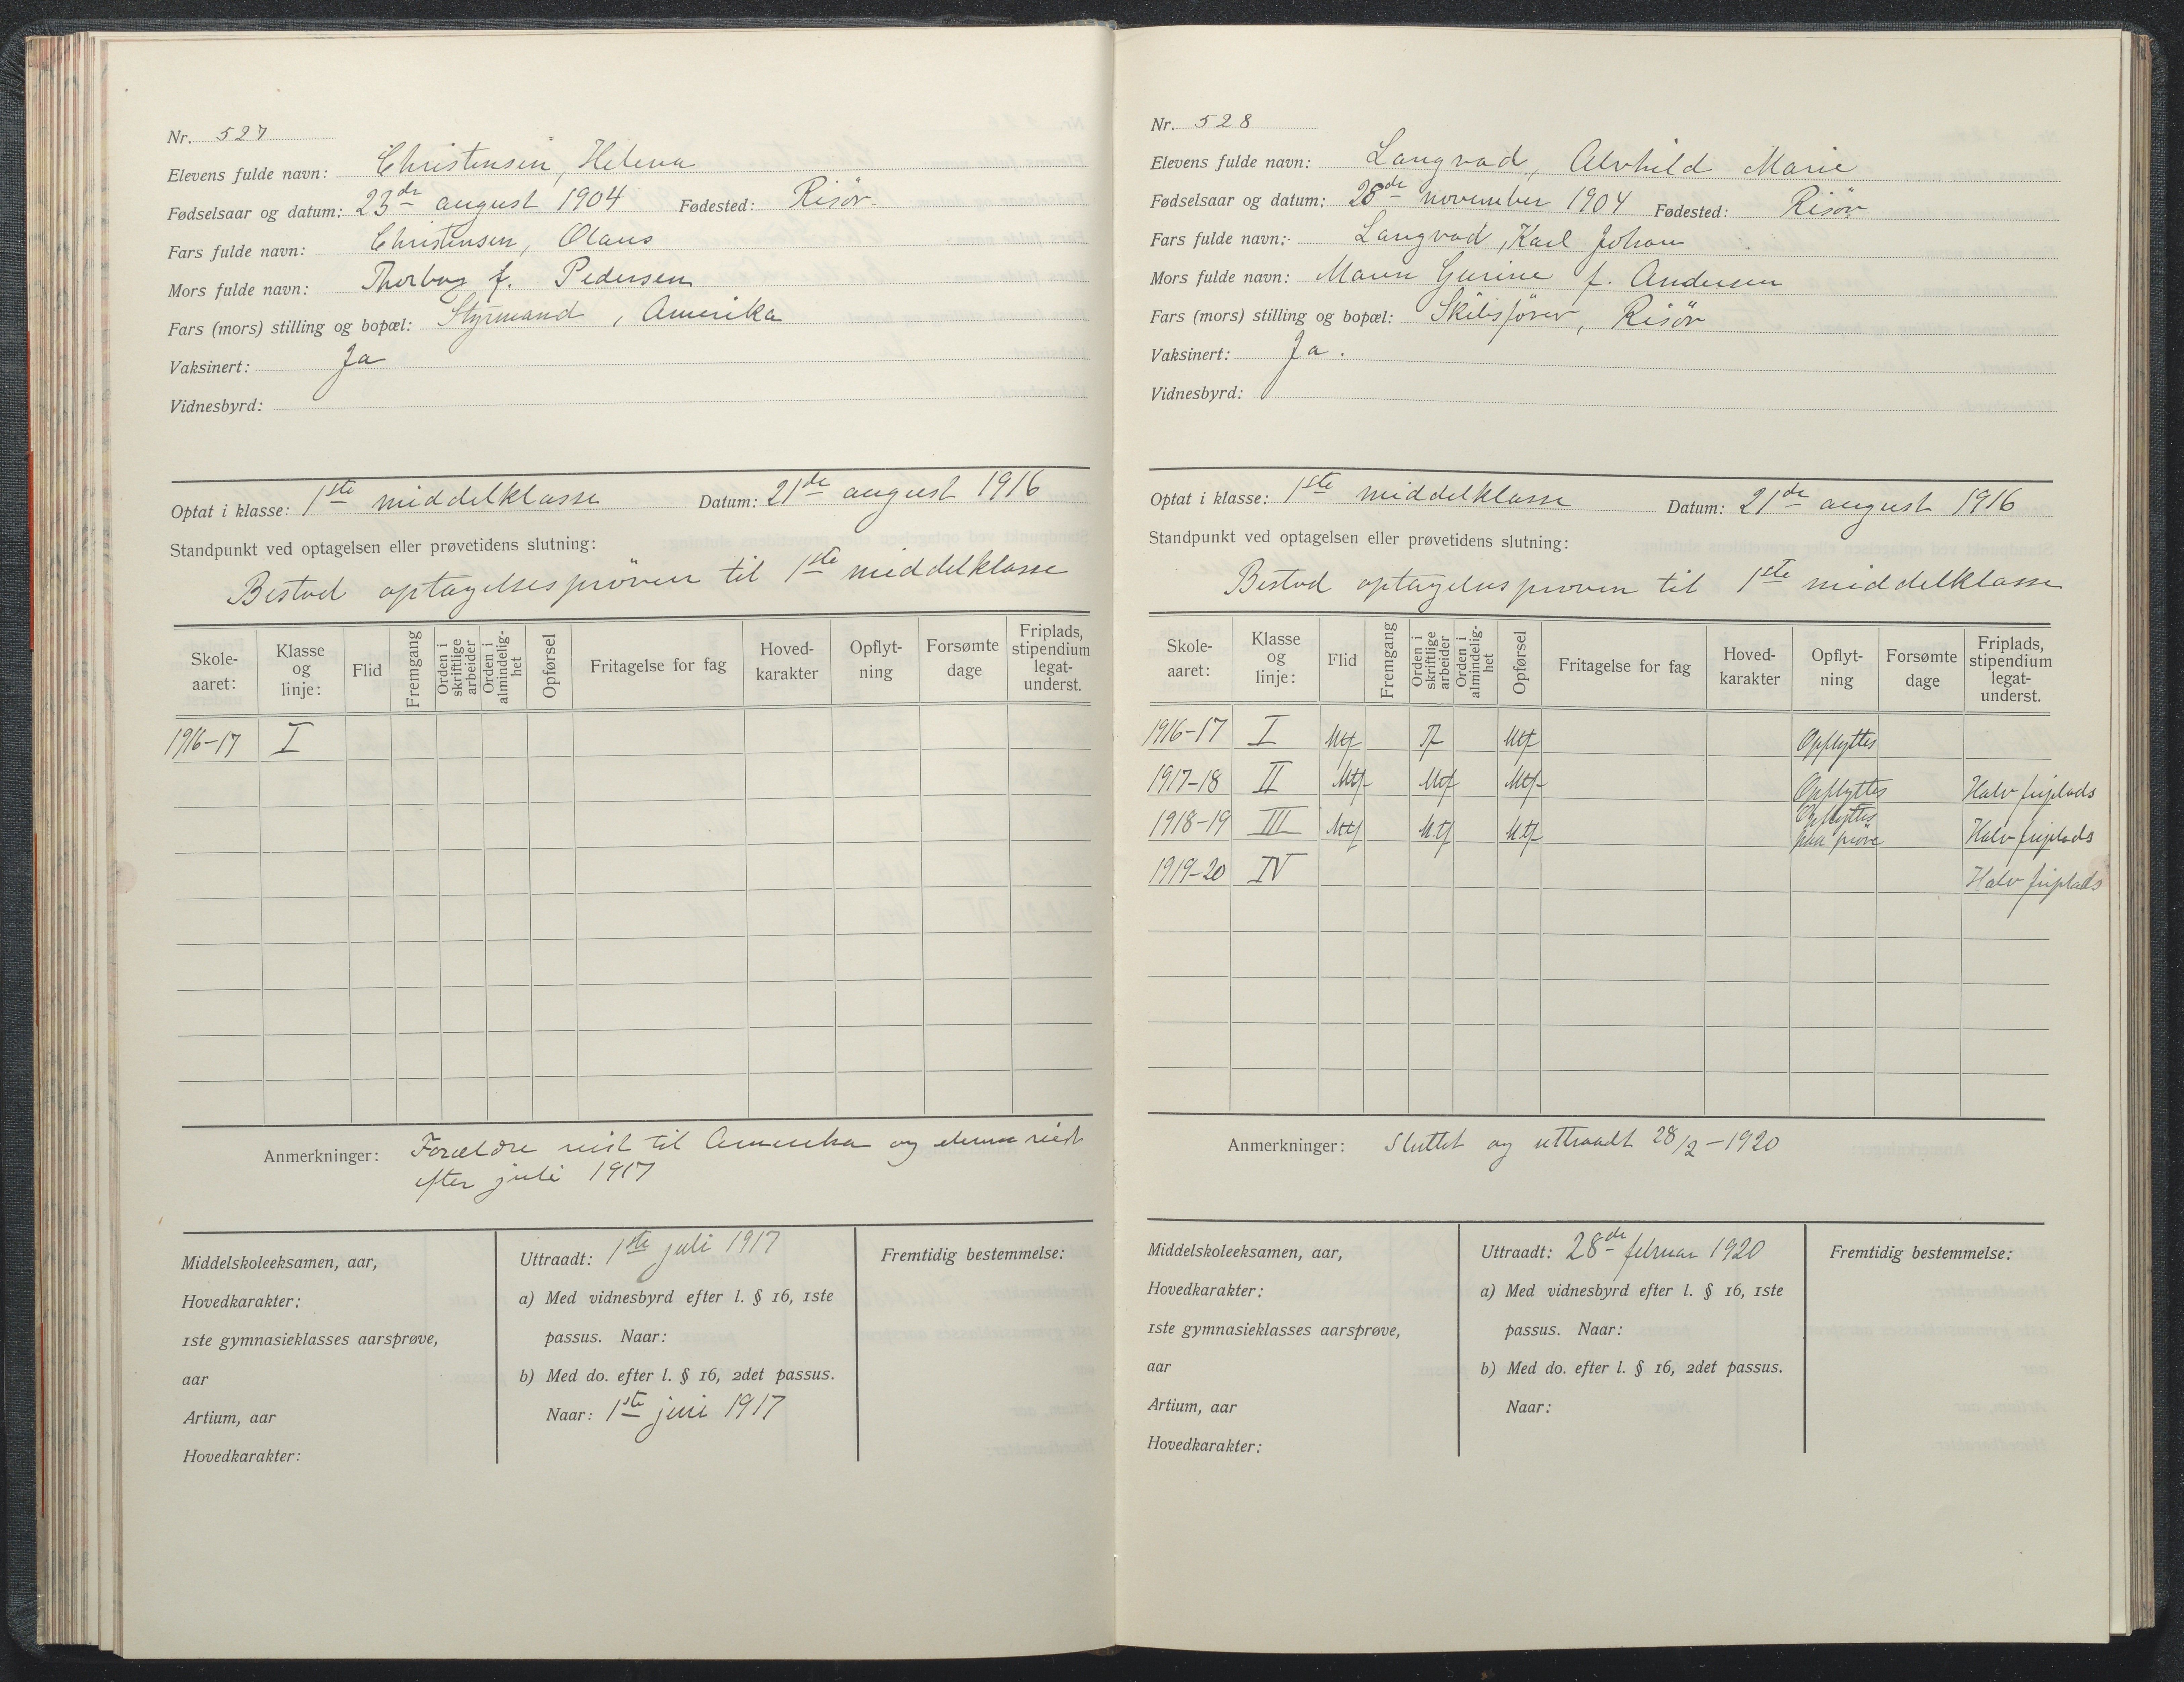 Nr. 527
Elevens fulde navn: Christensen, Helena
Fødselsaar og datum: 23de august 1904 Fødested: Risör
Fars fulde navn: Christensen, Olaus
Mors fulde navn: Thorborg f. Pedersen
Fars (mors) stilling og bopæl: Styrmand, Amerika
Vaksinert: Ja
Vidnesbyrd:
Optat i klasse: 1ste middelklasse Datum: 21de august 1916
Standpunkt ved optagelsen eller prøvetidens slutning:
Bestod optagelsespröven til 1ste middelklasse
Skole-aaret: Klasse og linje: Flid Fremgang Orden i skriftlige arbeider Orden i almindelig-het Opførsel Fritagelse for fag Hoved-karakter Opflyt-ning Forsømte dage Friplads, stipendium legat-underst.
1916-17 I
Anmerkninger: Forældre reist til Amerika og denne reist
efter juli 1917
Middelskoleeksamen, aar,
Hovedkarakter:
1ste gymnasieklasses aarsprøve,
aar
Artium, aar
Hovedkarakter:
Uttraadt: 1ste juli 1917
a) Med vidnesbyrd efter l. § 16, 1ste
passus. Naar:
b) Med do. efter l. § 16, 2det passus.
Naar: 1ste juni 1917
Fremtidig bestemmelse:
Nr. 528
Elevens fulde navn: Langvad, Alvhild Marie
Fødselsaar og datum: 28de november 1904 Fødested: Risör
Fars fulde navn: Langvad, Karl Johan
Mors fulde navn: Maren Gurine f. Andersen
Fars (mors) stilling og bopæl: Skibsfører, Risör
Vaksinert: Ja.
Vidnesbyrd:
Optat i klasse: 1ste middelklasse Datum: 21de august 1916
Standpunkt ved optagelsen eller prøvetidens slutning:
Bestod optagelsesprøven til 1ste middelklasse
Skole-aaret: Klasse og linje: Flid Fremgang Orden i skriftlige arbeider Orden i almindelig-het Opførsel Fritagelse for fag Hoved-karakter Opflyt-ning Forsømte dage Friplads, stipendium legat-underst.
1916-17 I Mtf Tf Mtf Opflyttes
1917-18 II Mtf Mtf Mtf Opflyttes Halv friplads
1918-19 III Mtf Mtf Mtf Opflyttes paa prøve Halv friplads
1919-20 IV Halv friplads
Anmerkninger: Sluttet og uttraadt 28/2-1920
Middelskoleeksamen, aar,
Hovedkarakter:
1ste gymnasieklasses aarsprøve,
aar
Artium, aar
Hovedkarakter:
Uttraadt: 28de februar 1920
a) Med vidnesbyrd efter l. § 16, 1ste
passus. Naar:
b) Med do. efter l. § 16, 2det passus.
Naar:
Fremtidig bestemmelse: